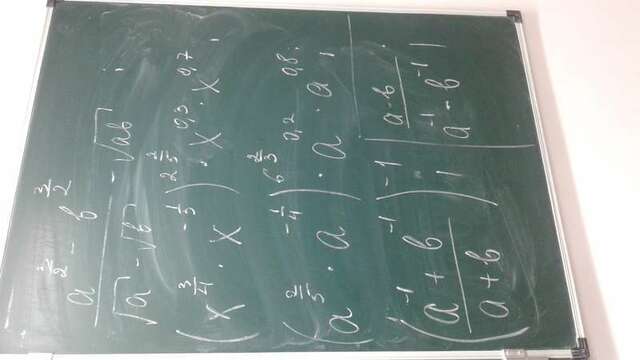 (a^{3/2} - b^{3/2})/(√a - √b) - √ab ;
(x^{3/4} · x^{-1/5})^{2 2/5} · x^{0,3} · x^{0,7} ;
(a^{2/5} · a^{-1/4})^{6 2/3} · a^{0,2} · a^{0,8} ;
((a^{-1} + b^{-1})/(a + b))^{-1} ; | (a - b)/(a^{-1} - b^{-1}) ;